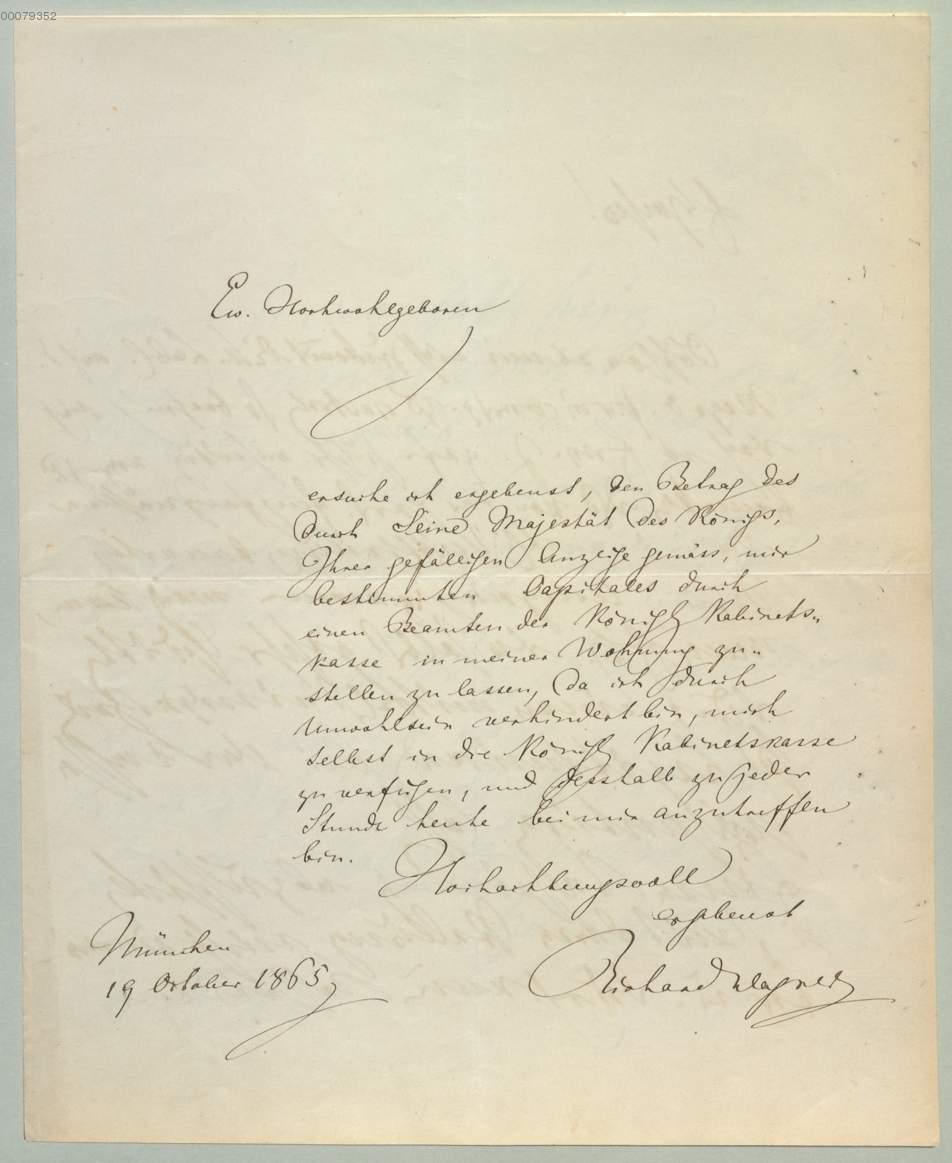 00079352
Ew. Hochwohlgeboren
ersuche ich ergebenst, den Betrag des
durch Seine Majestät des Königs,
Ihrer gefälligen Anzeige gemäss, mir
bestimmten Capitales durch
einen Beamten der Königl Kabinets-
kasse in meiner Wohnung zu-
stellen zu lassen, da ich durch
Unwohlsein verhindert bin, mich
selbst in die Königl Kabinetskasse
zu verfügen, und desshalb zu jeder
Stunde heute bei mir anzutreffen
bin.
Hochachtungsvoll
ergebenst
München
19 October 1865
Richard Wagner